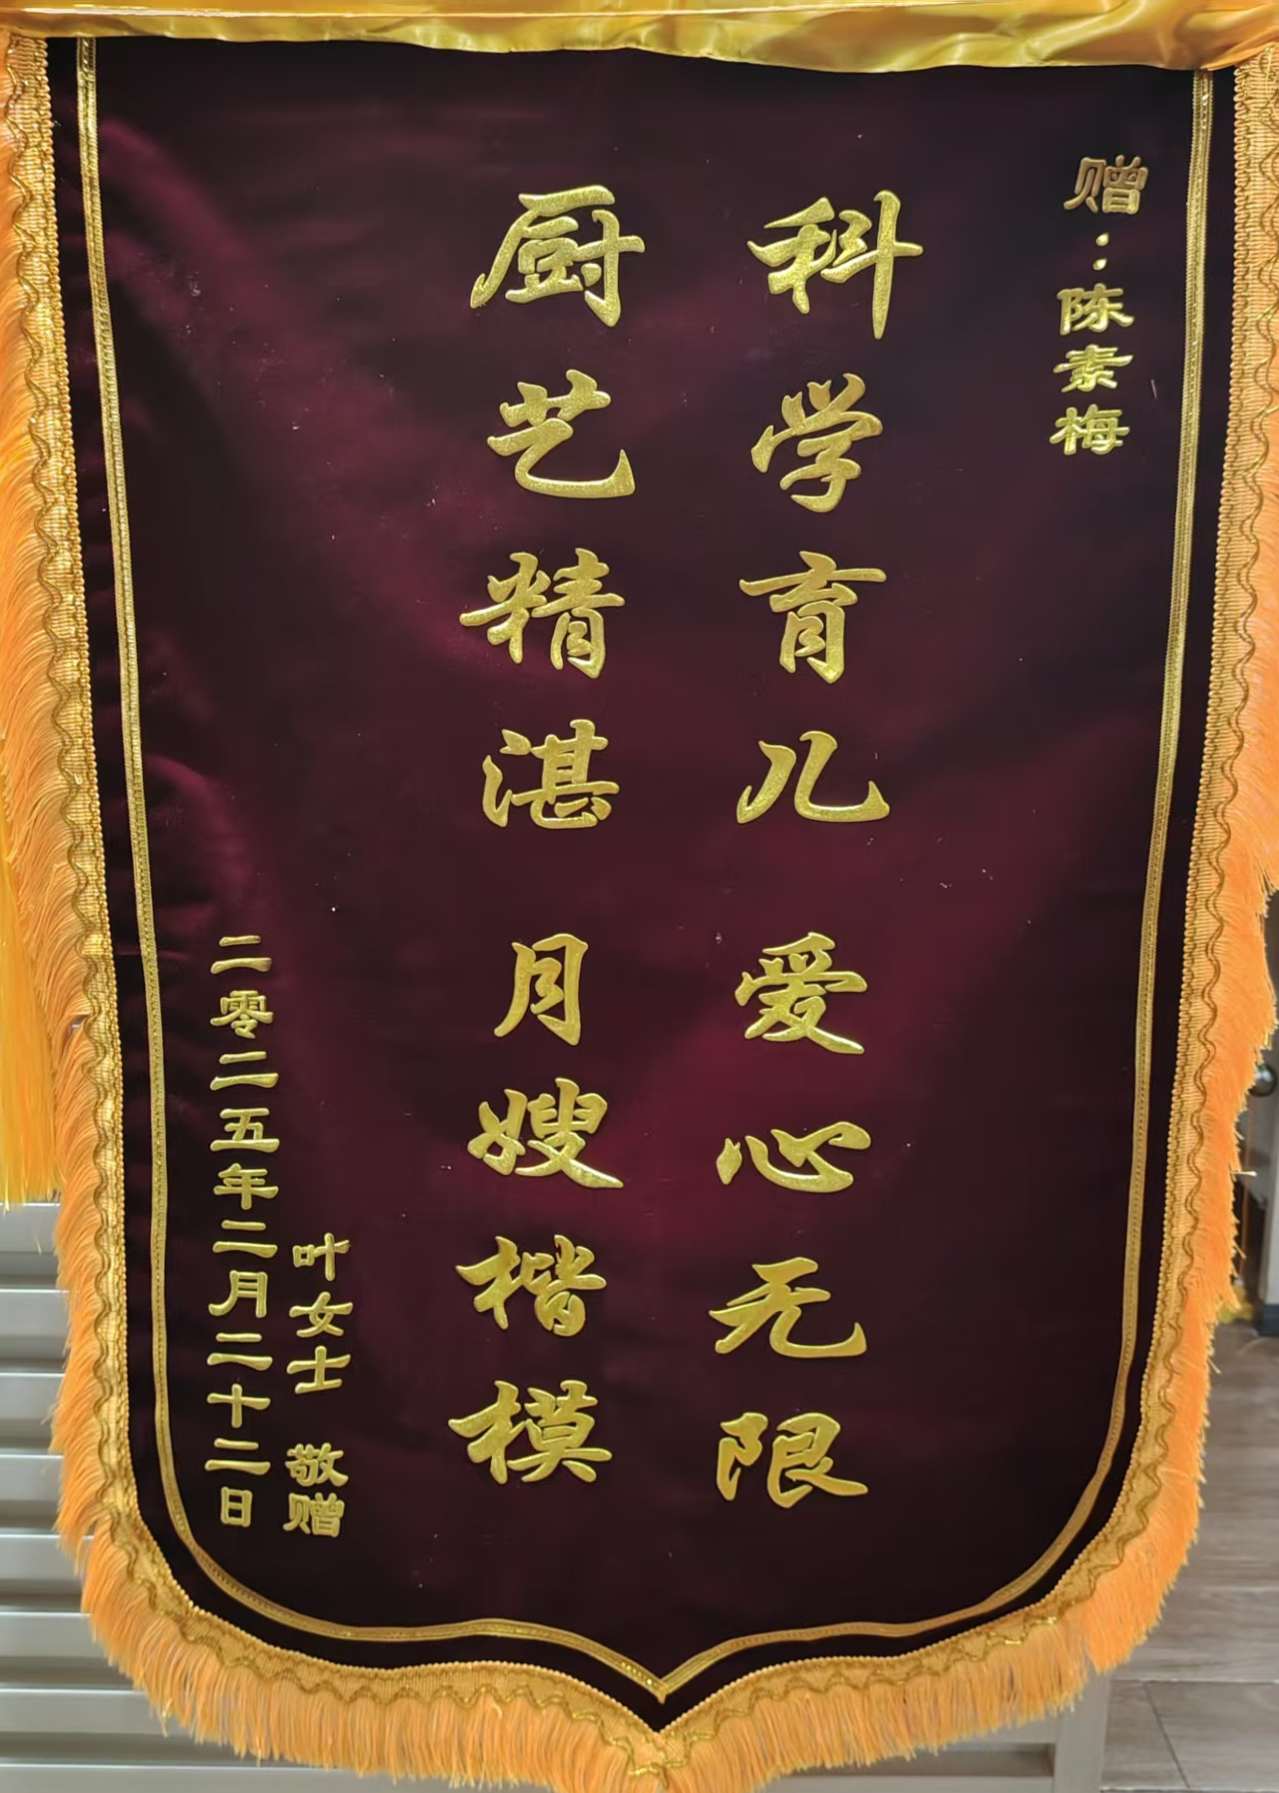 赠：陈素梅
科学育儿 爱心无限
厨艺精湛 月嫂楷模
叶女士 敬赠
二零二五年二月二十二日